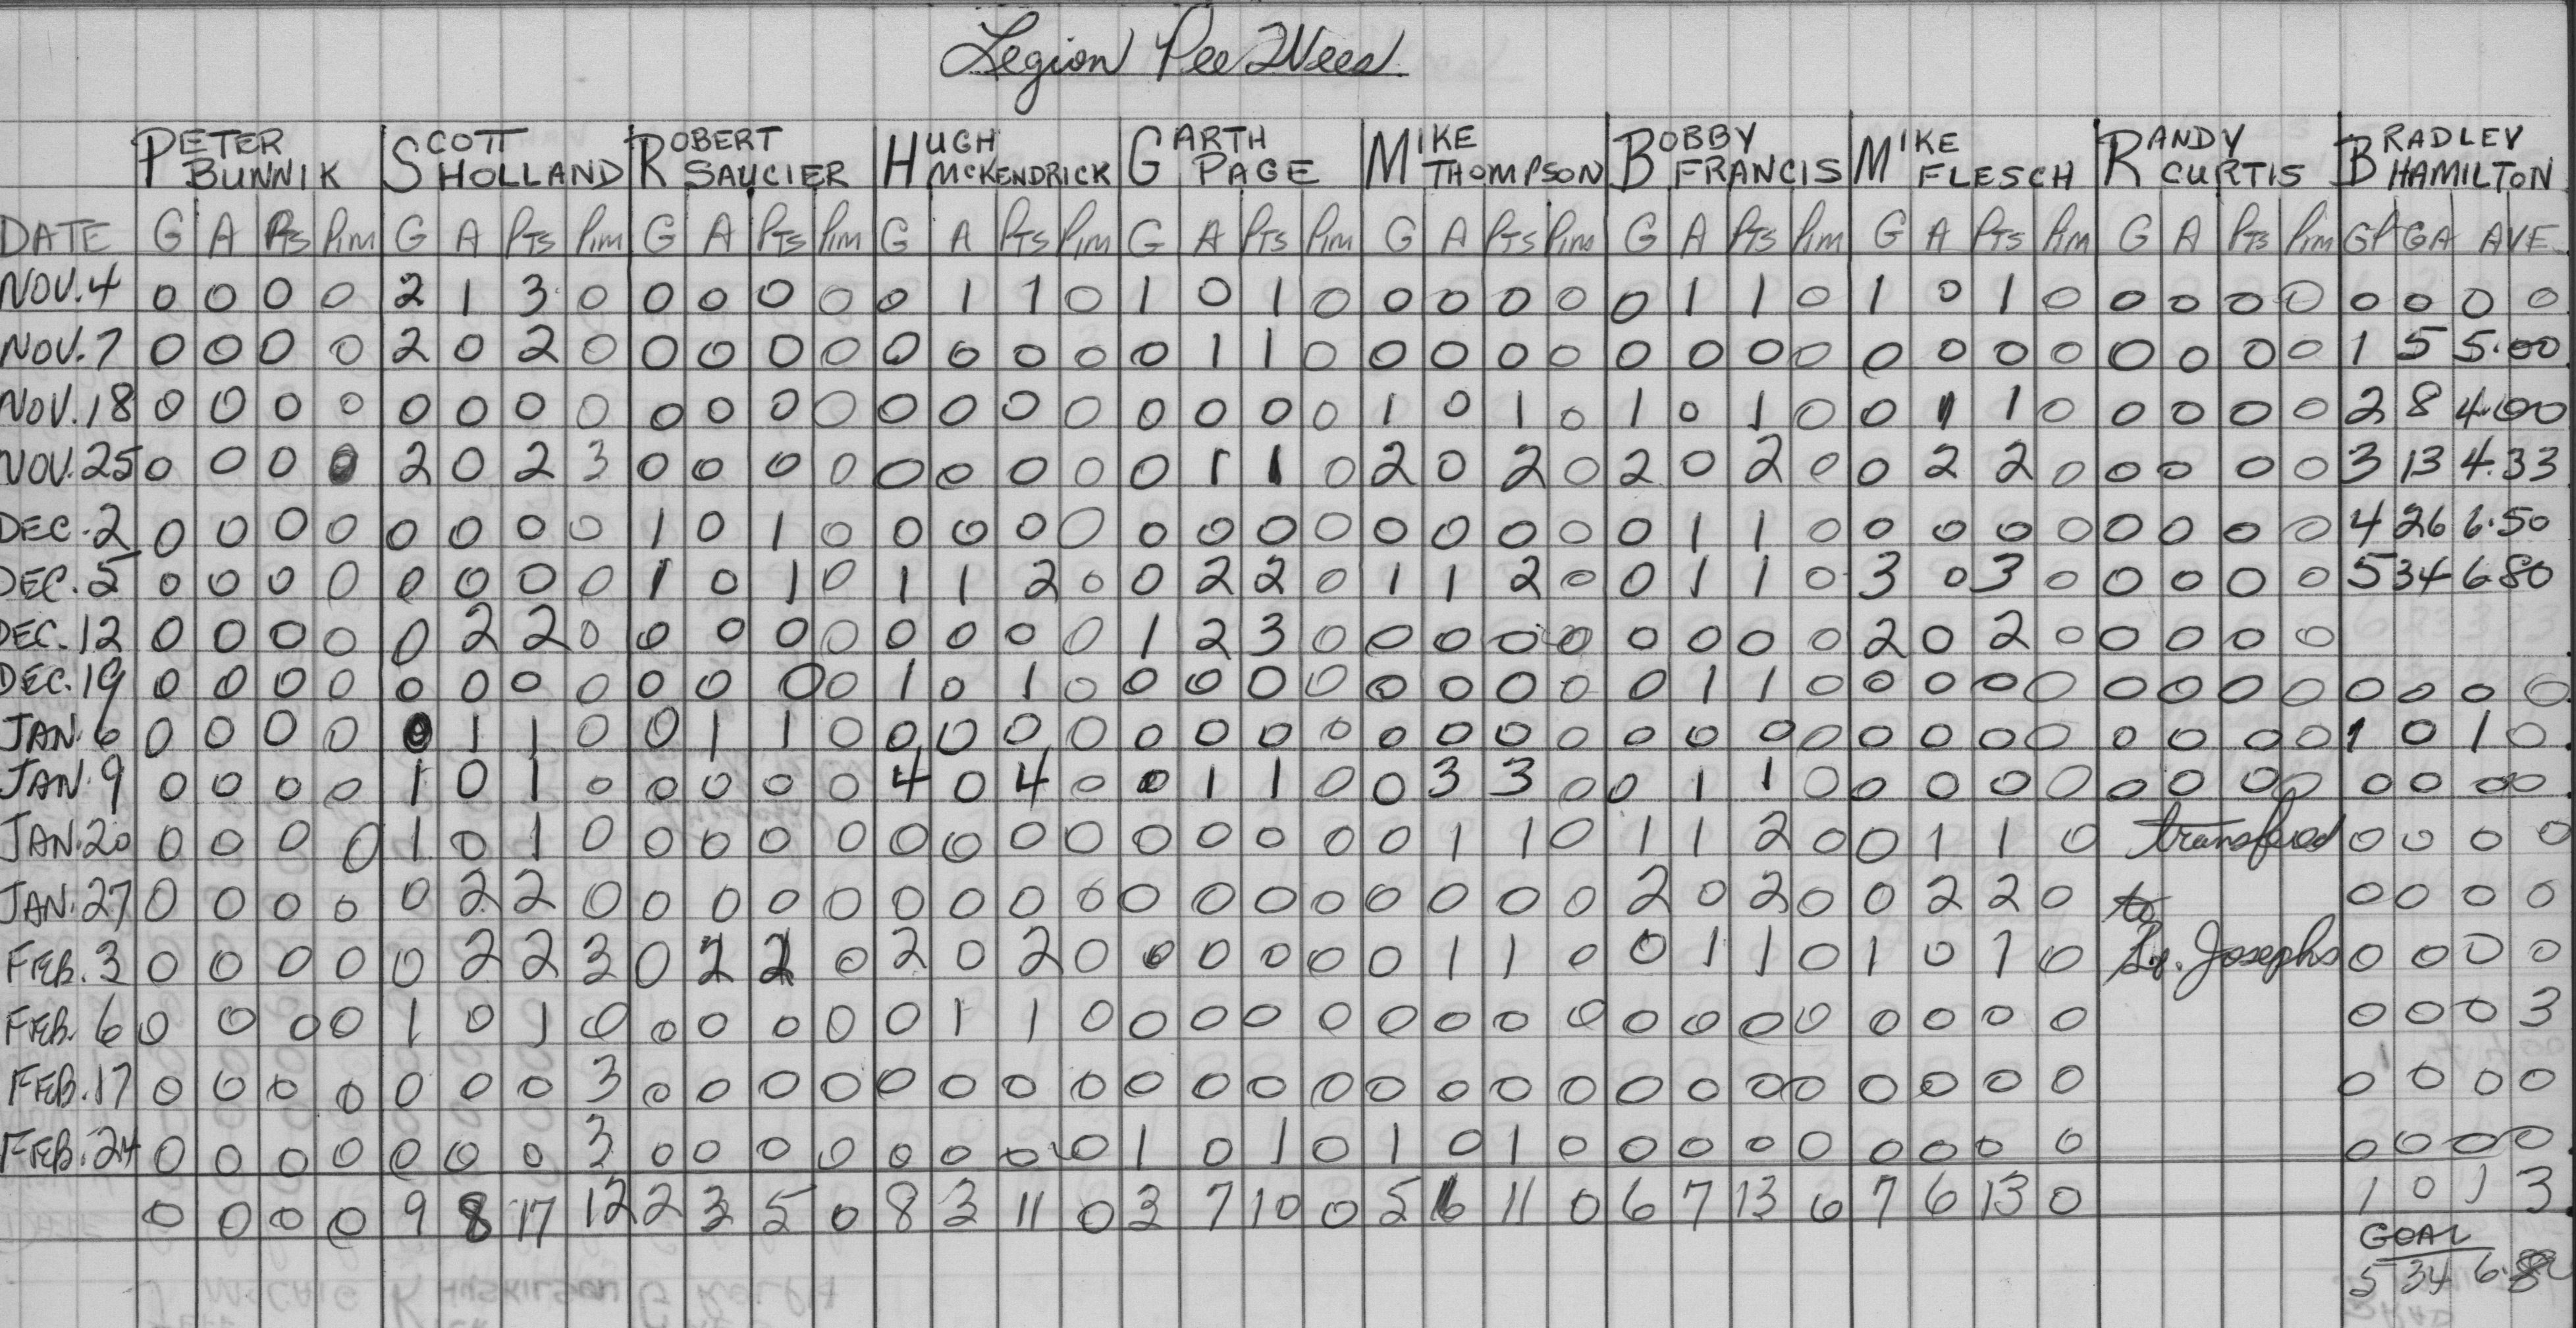 Legion Pee Wees
PETER BUNNIK SCOTT HOLLAND ROBERT SAUCIER HUGH MCKENDRICK GARTH PAGE MIKE THOMPSON BOBBY FRANCIS MIKE FLESCH RANDY CURTIS BRADLEY HAMILTON
DATE G A Pts Pim G A Pts Pim G A Pts Pim G A Pts Pim G A Pts Pim G A Pts Pim G A Pts Pim G A Pts Pim G A Pts Pim GP GA AVE
NOV. 4 0 0 0 0 2 1 3 0 0 0 0 0 0 1 1 0 1 0 1 0 0 0 0 0 0 1 1 0 1 0 1 0 0 0 0 0 0 0 0 0
NOV. 7 0 0 0 0 2 0 2 0 0 0 0 0 0 0 0 0 0 1 1 0 0 0 0 0 0 0 0 0 0 0 0 0 0 0 0 0 1 5 5.00
NOV. 18 0 0 0 0 0 0 0 0 0 0 0 0 0 0 0 0 0 0 0 0 1 0 1 0 1 0 1 0 0 1 1 0 0 0 0 0 2 8 4.00
NOV. 25 0 0 0 0 2 0 2 3 0 0 0 0 0 0 0 0 0 1 1 0 2 0 2 0 2 0 2 0 0 2 2 0 0 0 0 0 3 13 4.33
DEC. 2 0 0 0 0 0 0 0 0 1 0 1 0 0 0 0 0 0 0 0 0 0 0 0 0 0 1 1 0 0 0 0 0 0 0 0 0 4 26 6.50
DEC. 5 0 0 0 0 0 0 0 0 1 0 1 0 1 1 2 0 0 2 2 0 1 1 2 0 0 1 1 0 3 0 3 0 0 0 0 0 5 34 6 80
DEC. 12 0 0 0 0 0 2 2 0 0 0 0 0 0 0 0 0 1 2 3 0 0 0 0 0 0 0 0 0 2 0 2 0 0 0 0 0
DEC. 19 0 0 0 0 0 0 0 0 0 0 0 0 1 0 1 0 0 0 0 0 0 0 0 0 0 1 1 0 0 0 0 0 0 0 0 0 0 0 0 0
JAN. 6 0 0 0 0 0 1 1 0 0 1 1 0 0 0 0 0 0 0 0 0 0 0 0 0 0 0 0 0 0 0 0 0 0 0 0 0 1 0 1 0
JAN. 9 0 0 0 0 1 0 1 0 0 0 0 0 4 0 4 0 0 1 1 0 0 3 3 0 0 1 1 0 0 0 0 0 0 0 0 0 0 0 0 0
JAN. 20 0 0 0 0 1 0 1 0 0 0 0 0 0 0 0 0 0 0 0 0 0 1 1 0 1 1 2 0 0 1 1 0 transfered 0 0 0 0
JAN. 27 0 0 0 0 0 2 2 0 0 0 0 0 0 0 0 0 0 0 0 0 0 0 0 0 2 0 2 0 0 2 2 0 to 0 0 0 0
FEB. 3 0 0 0 0 0 2 2 3 0 2 2 0 2 0 2 0 0 0 0 0 0 1 1 0 0 1 1 0 1 0 1 0 Josephs 0 0 0 0
FEB. 6 0 0 0 0 1 0 1 0 0 0 0 0 0 1 1 0 0 0 0 0 0 0 0 0 0 0 0 0 0 0 0 0 0 0 0 3
FEB. 17 0 0 0 0 0 0 0 3 0 0 0 0 0 0 0 0 0 0 0 0 0 0 0 0 0 0 0 0 0 0 0 0 0 0 0 0
FEB. 24 0 0 0 0 0 0 0 3 0 0 0 0 0 0 0 0 1 0 1 0 1 0 1 0 0 0 0 0 0 0 0 0 0 0 0 0
0 0 0 0 9 8 17 12 2 3 5 0 8 3 11 0 3 7 10 0 5 6 11 0 6 7 13 0 7 6 13 0 1 0 1 3
GOAL
5 34